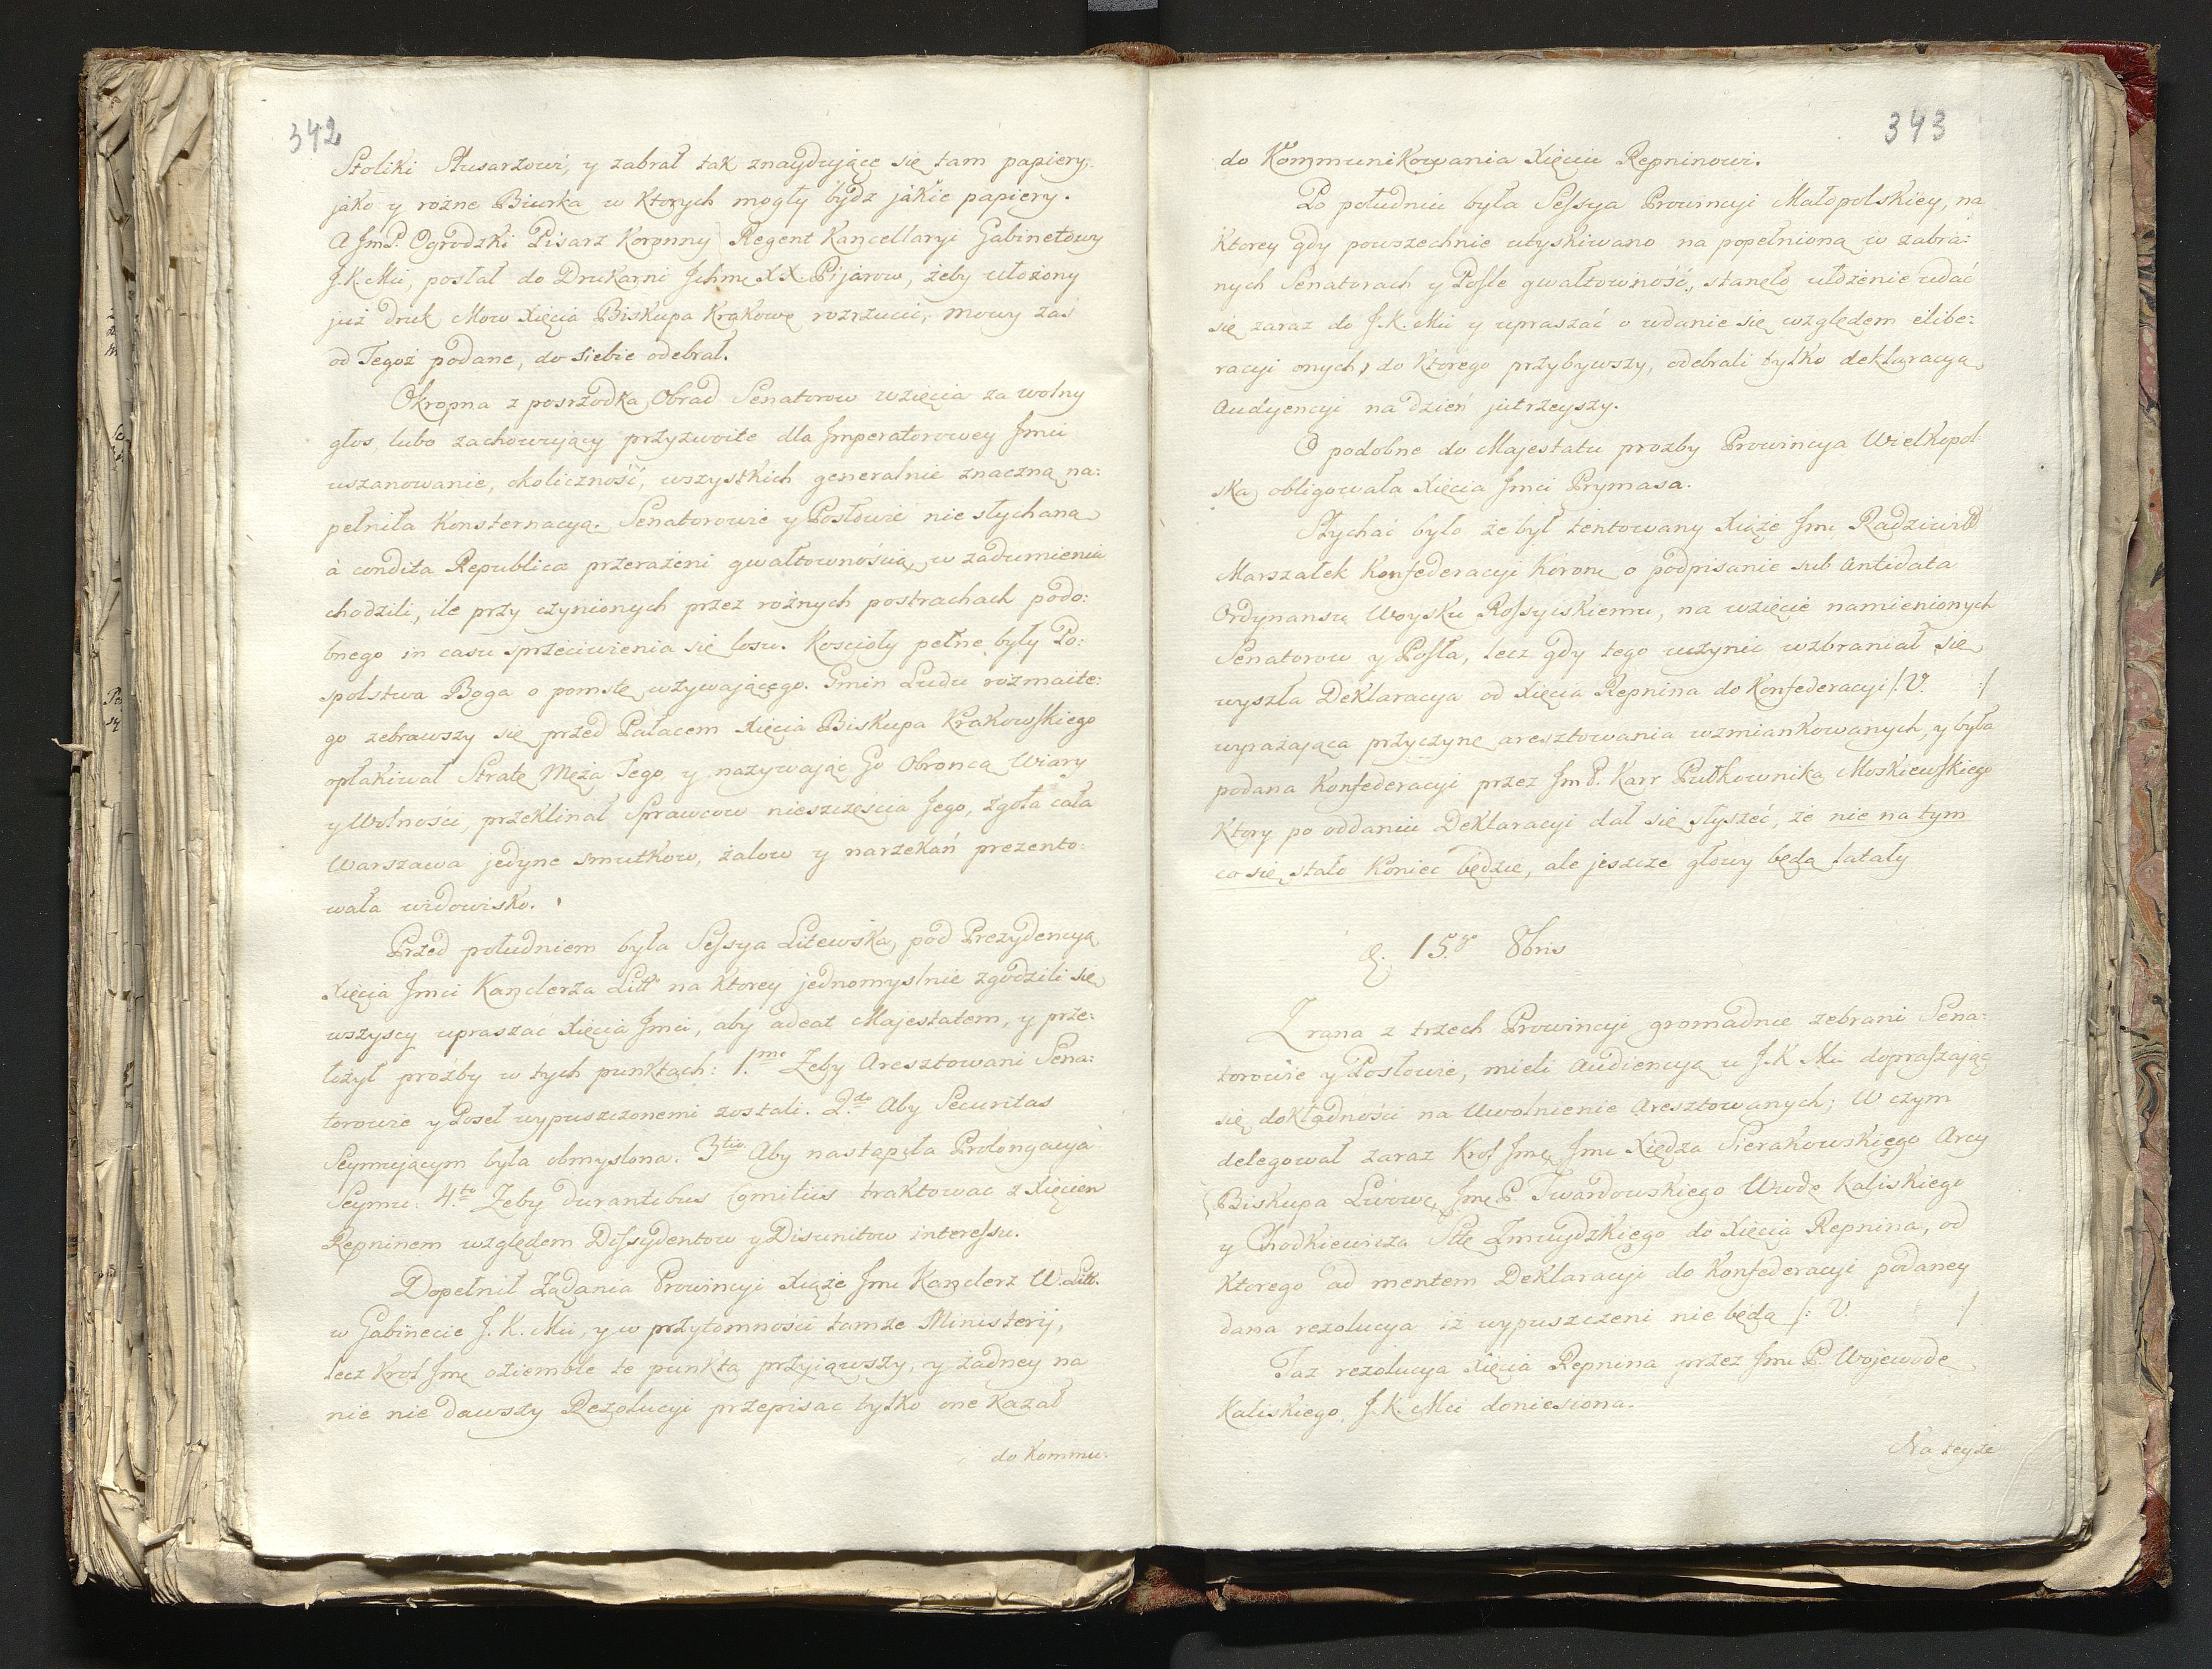 342
Stoliki Slusarzowi, y zabrał tak znaydujące się tam papiery,
jako y rożne Biurka w Ktorych mogły bydz jákie papiery.
A JmP. Ogrodzki Pisarz Koronny Regent Kancellaryi Gabinetowy
J.K.Mci, posłał do Drukarni Jchmc XX. Pijarow, żeby ułożony
już druk Mow Xięcia Biskupa Krakowo rozrzucić, mowy zaś
od Tegoż podane, do siebie odebrał.
Okropna z posrzodka Obrad Senatorow wzięcia za wolny
głos, lubo zachowujący przyzwoite dla Jmperatorowey Jmci
uszanowanie, okoliczność, wszystkich generalnie znaczną na:
pełniła Konsternacyą. Senatorowie y Posłowie niesłychaną
à condita Republica przerażeni gwałtownością, w zadumieniu
chodzili, ile przy czynionych przez rożnych postrachach podo:
bnego in casu sprzeciwienia się losu. Kościoły pełne były Po:
spolstwa Boga o pomstę wzywającego. Gmin Ludu rozmaite:
go zebrawszy się przed Pałacem Xięcia Biskupa Krakowskiego
opłakiwał Stratę Męża Tego, y nazywając Go Obroncą Wiary
y Wolności, przeklinał Sprawcow nieszczęścia Jego, zgoła cała
Warszawa jedyne smutkow, żalow y narzekań prezento:
wała widowisko.
Przed południem była Sessya Litewska, pod Prezydencyą
Xięcia Jmci Kanclerza Litto na Ktorey jednomyslnie zgodzili się
wszyscy upraszać Xięcia Jmci, aby adeat Majestatem, y prze:
łożył prożby w tych punktach: 1.mo Zeby Aresztowani Sena:
torowie y Poseł wypuszczonemi zostali. 2.do Aby Securitas
Seymującym była obmyslona. 3tio Aby nastąpiła Prolongacya
Seymu. 4.to Zeby durantibus Comitiis traktować z Xięciem
Repninem względem Dissydentow y Disunitow interessu.
Dopełnił Ządania Prowincyi Xiąże Jmc Kanclerz W.Litt.
w Gabinecie J.K.Mci, y w przytomności tamże Ministerij,
lecz Krol Jmc oziemble te punkta przyiąwszy, y żadney na
nie nie dawszy Rezolucyi przepisac tylko one Kazał
do Kommu:
343
do Kommunikowania Xięciu Repninowi.
Po południu była Sessya Prowincyi Małopolskiey, na
Ktorey gdy powszechnie utyskiwano na popełnioną w zabra:
nych Senatorach y Posle gwałtowność, stanęło ułożenie udać
się zaraz do J.K.Mci y upraszać o udanie się względem elibe:
racyi onych, do Ktorego przybywszy, odebrali tylko deklaracyą
Audyencyi na dzień jutrzeyszy.
O podobne do Majestatu prozby Prowincya Wielkopol
ska obligowała Xięcia Jmci Prymasa.
Słychać było że był tentowany Xiąże Jmc Radziwiłł
Marszałek Konfederacyi Koronn o podpisanie sub Antidata
Ordynansu Woysku Rossyiskiemu, na wzięcie namienionych
Senatorow y Posła, lecz gdy tego uczynić wzbraniał się
wyszła Deklaracya od Xięcia Repnina do Konfederacyi /: V. :/
wyrażająca przyczynę aresztowania wzmiankowanych, y była
podana Konfederacyi przez JmP. Karr Pułkownika Moskiewskiego
Ktory po oddaniu Deklaracyi dał się słyszeć, że nie na tym
co się stało Koniec będzie, ale jeszcze głowy będą latały
d. 15go 8bris
Z rana z trzech Prowincyi gromadnie zebrani Sena:
torowie y Posłowie, mieli Audiencyą u J.K Mci dopraszając
się dokładności na Uwolnienie Aresztowanych; W czym
delegował zaraz Krol Jmc Jmc Xiędza Sierakowskiego Arcy
Biskupa Lwowo, Jmc P. Twardowskiego Wwodę Kaliskiego
y Chodkiewicza Sttę Zmuydzkiego do Xięcia Repnina, od
Ktorego ad mentem Deklaracyi do Konfederacyi podaney
dana rezolucya iż wypuszczeni nie będą /: V. :/
Taz rezolucya Xięcia Repnina przez Jmc P. Wojewodę
Kaliskiego J.K.Mci doniesiona.
Na teyże